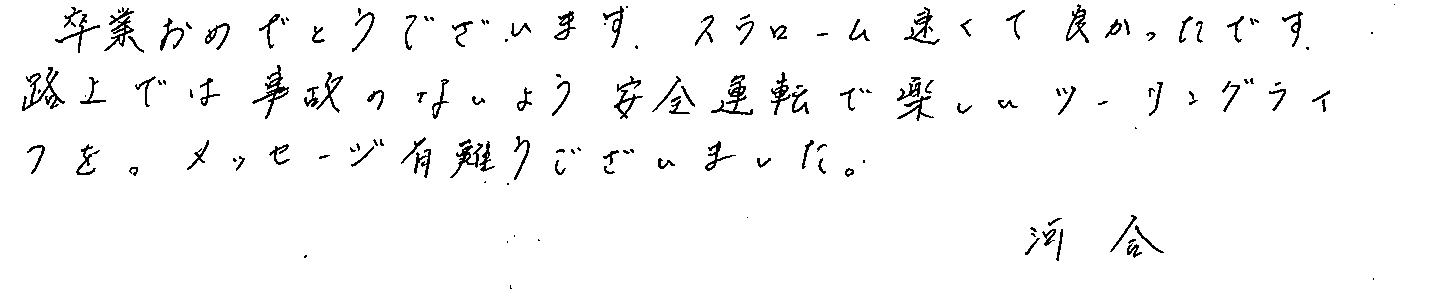 卒業おめでとうございます。スラローム速くて良かったです。
路上では事故のないよう安全運転で楽しいツーリングライ
フを。メッセージ有難うございました。
河合